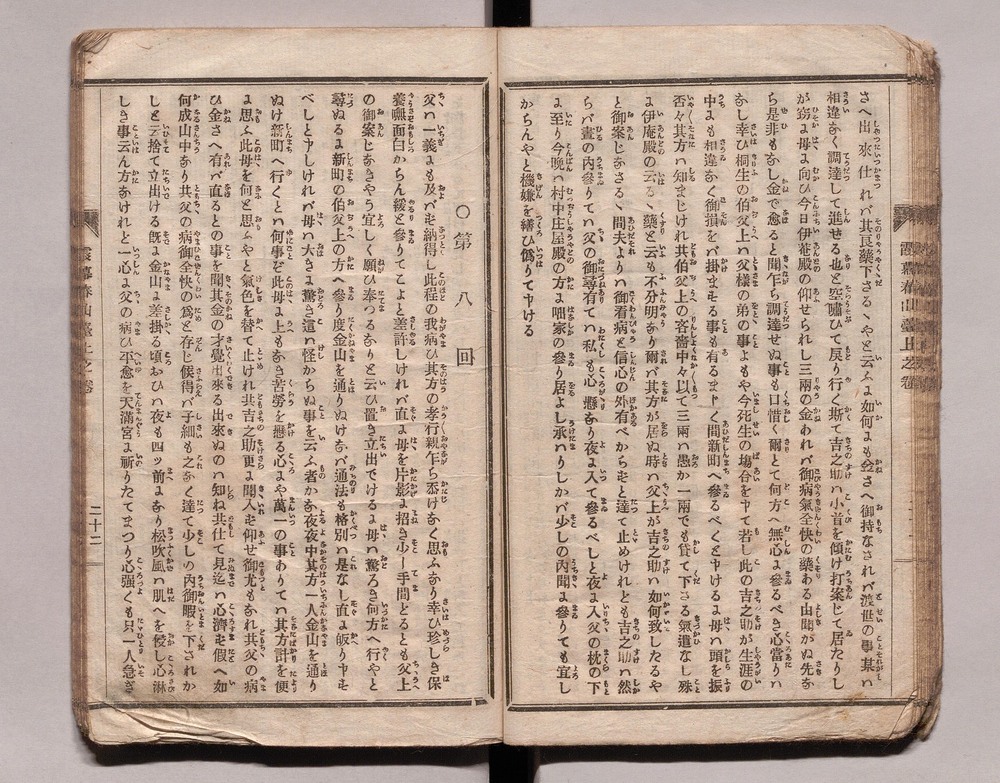 さへ出來仕れバ其良藥下さるヽやと云ふよ如何よも金さへ御持なされバ渡世の事某ハ
相違なく調達して進せる也と空嘯ひて戻り行く斯て吉之助ハ小首を傾け打案じて居たりし
が窃よ母よ向ひ今日伊菴殿の仰せられし三兩の金あれバ御病氣全快の藥ある由聞がぬ先な
ら是非もなし金で愈ると聞乍ら調達せぬ事も口惜く爾とて何方へ無心よ參るべき心當りハ
なし幸ひ桐生の伯父上ハ父樣の弟の事よもや今死生の塲合を申て若し此の吉之助が生涯の
中よも相違なく御損をバ掛まモる事も有るまじく間新町へ參るべくと申けるよ母ハ頭を振
否々其方ハ知まじけれ共伯父上の吝嗇中々以て三兩ハ愚か一兩でも貸て下さる氣遣なし殊
よ伊庵殿の云るヽ藥と云も不分明なり爾バ其方が居ぬ時ハ父上が吉之助ハ如何致したるや
と御案じなさるヽ間夫よりハ御看病と信心の外有べからモと達て止めけれとも吉之助ハ然
らバ晝の内參りてハ父の御尋有てハ私も心懸なり夜よ入て參るべしと夜よ入父の枕の下
よ至り今晩ハ村中庄屋殿の方よ咄家の參り居るよし承ハりしかバ少しの内聞よ參りても宜し
からんやと機嫌を繕ひ僞りて申ける
○第八回
父ハ一義よも及バモ納得し此程の我病ひ其方の孝行親乍ら忝けなく思ふなり幸ひ珍しき保
養囃面白からん綏と參りてこよと差許しけれバ直よ母を片影よ招き少し手間どるとも父上
の御案じなきやう宜しく願ひ奉つるなりと云ひ置き立出でけるよ母ハ驚ろき何方へ行やと
尋ぬるよ新町の伯父上の方へ參り度金山を通りぬけなバ通法も格別ハ是なし直よ皈り申モ
べしと申しけれバ母ハ大きよ驚ろき這ハ怪からぬ事を云ふ者かな夜夜中其方一人金山を通り
ぬけ新町へ行くとハ何事ぞ此母よ上もなき苦勞を懸る心よや萬一の事ありてハ其方計を便
よ思ふ此母を何と思ふやと氣色を替て止けれ共吉之助更よ聞入モ仰せ御尤もなれ共父の病
ひ金さへ有バ直るとの事を聞其金の才覺出來る出來ぬのハ知ね共仕て見迄ハ心濟モ假へ如
何成山中なり共父の病御全快の爲と存じ候得バ子細も之なく達て少しの内御暇を下されか
しと云捨て立出ける既よ金山よ差掛る頃おひハ夜も四ッ前よなり松吹風ハ肌へを侵し心淋
しき事云ん方なけれと一心よ父の病ひ平愈を天滿宮よ祈りたてまつり心强くも只一人急ぎ
二十二